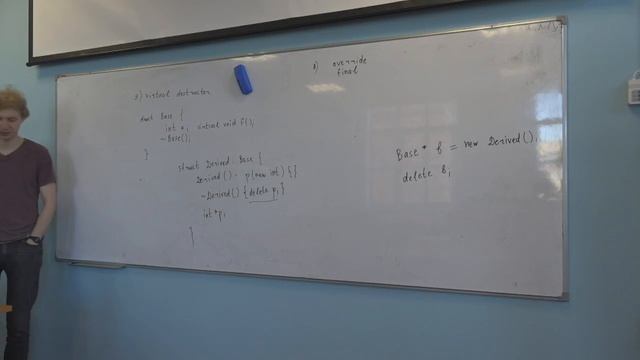 9) virtual destructor
struct Base {
int x; virtual void f();
~Base();
}
struct Derived: Base {
Derived() : p(new int) {}
~Derived() {delete p;}
int *p;
}
8) override
final
Base * b = new Derived();
delete b;